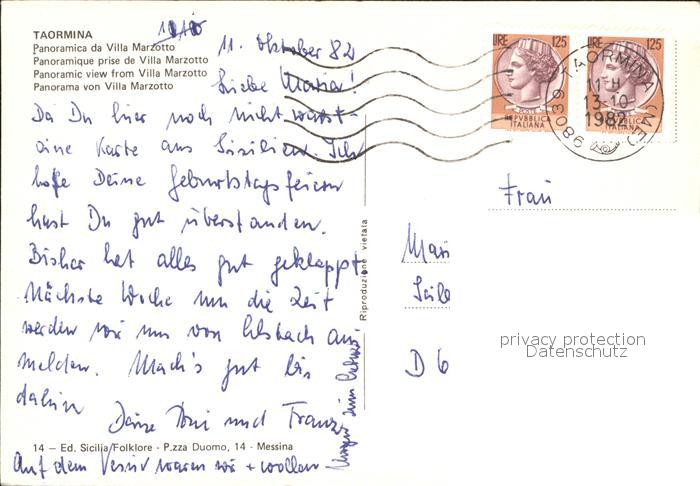 TAORMINA
Panoramica da Villa Marzotto
Panoramique prise de Villa Marzotto
Panoramic view from Villa Marzotto
Panorama von Villa Marzotto
11. Oktober 82
Liebe Maria!
Da Du hier noch nicht warst -
eine Karte aus Sizilien. Ich
hoffe Deine Geburtstagsfeiern
hast Du gut überstanden.
Bisher hat alles gut geklappt.
Nächste Woche um die Zeit
werden wir uns von
melden. Mach's gut bis
dahin
Deine Toni und Franz
14 — Ed. Sicilia Folklore - P.zza Duomo, 14 - Messina
Auf dem Vesuv waren wir + wollen
zum
Riproduzione vietata
LIRE 125
REPVBBLICA
ITALIANA
LIRE 125
REPVBBLICA
ITALIANA
98039 TAORMINA (ME)
11-H
13-10
1982
Frau
D 6
privacy protection
Datenschutz